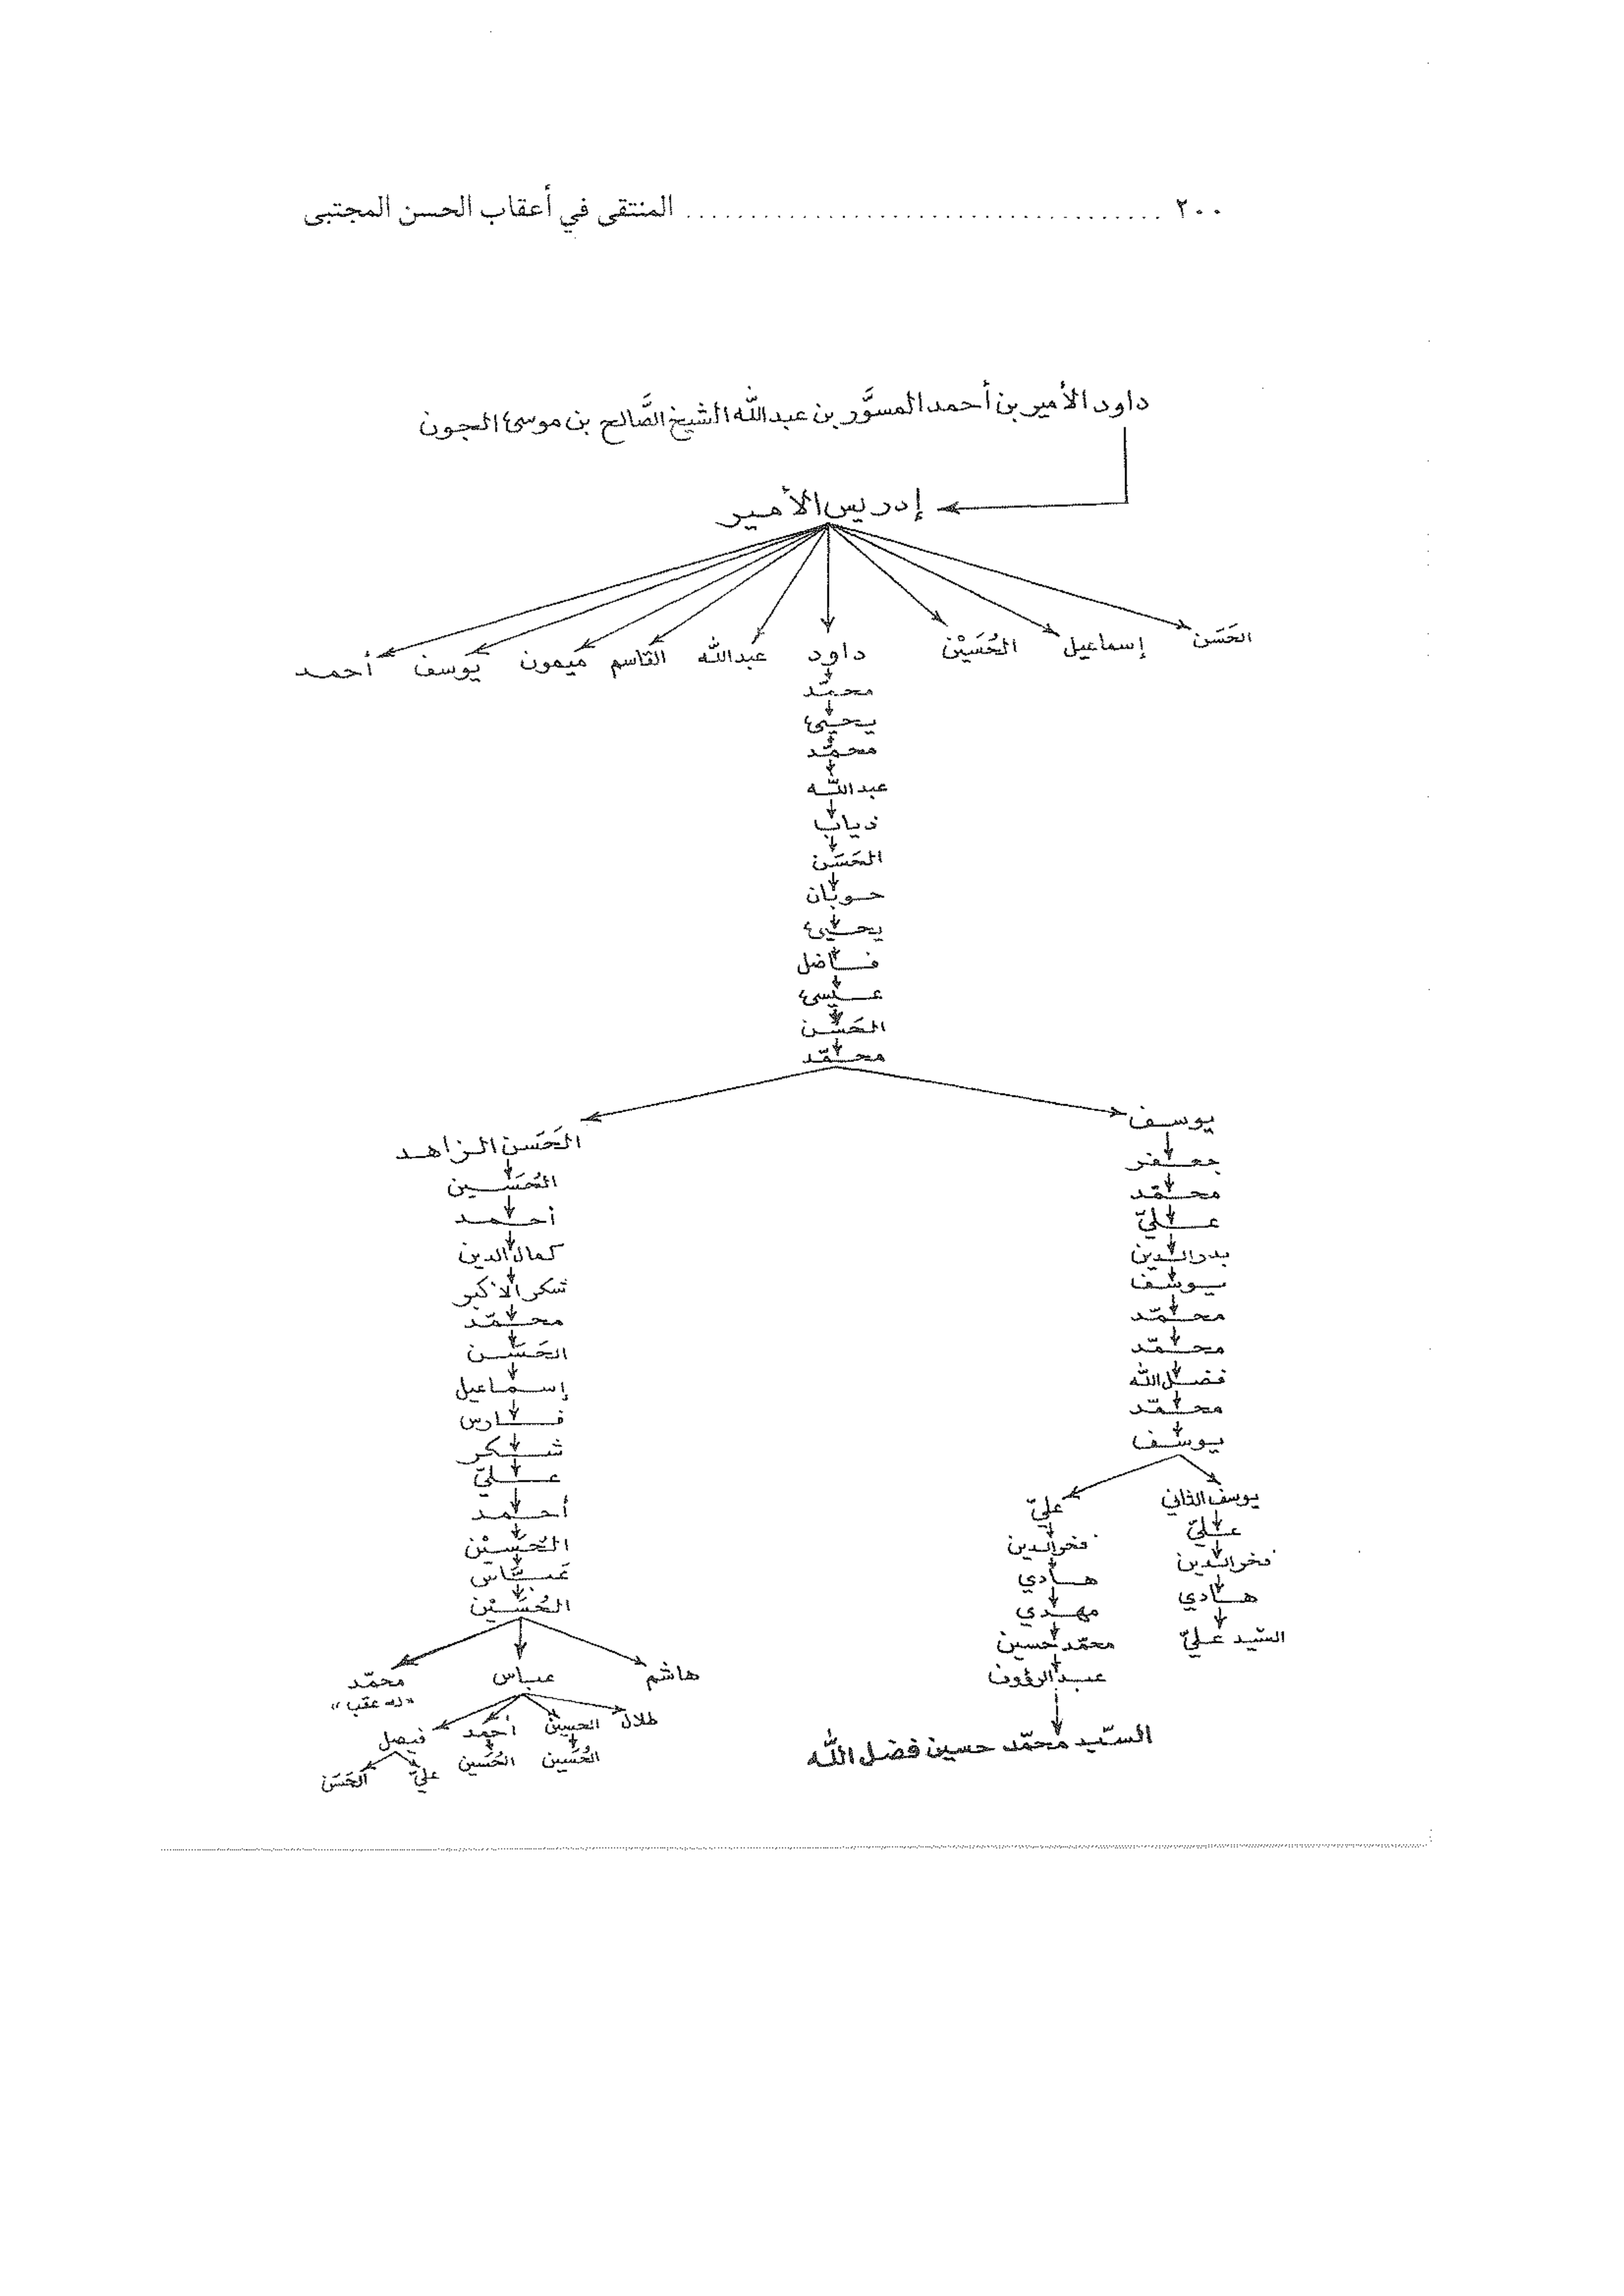 ٢٠٠ ..................................... المنتقى في أعقاب الحسن المجتبى
داود الأمير بن أحمد المسوَّر بن عبدالله الشيخ الصَّالح بن موسى الجون
إدريس الأمير
الحَسَن إسماعيل الحُسَيْن داود عبدالله القاسم ميمون يوسف أحمد
محمّد
يحيى
محمّد
عبدالله
ذياب
الحَسَن
حوبان
يحيى
فاضل
عيسى
الحَسَن
محمّد
يوسف
جعفر
محمّد
عليّ
بدرالدين
يوسف
محمّد
محمّد
فضل الله
محمّد
يوسف
يوسف الثاني
عليّ
فخرالدين
هادي
السّيد عليّ
عليّ
فخرالدين
هادي
مهدي
محمّد حسين
عبدالرؤوف
السّيد محمّد حسين فضل الله
الحَسَن الزاهد
الحُسَين
أحمد
كمال الدين
شكر الأكبر
محمّد
الحَسَن
إسماعيل
فارس
شكر
عليّ
أحمد
الحُسَيْن
عَبَّاس
الحُسَيْن
هاشم عباس محمّد
«له عقب»
طلال الحسين أحمد فيصل
الحُسَين الحُسَين عليّ الحَسَن